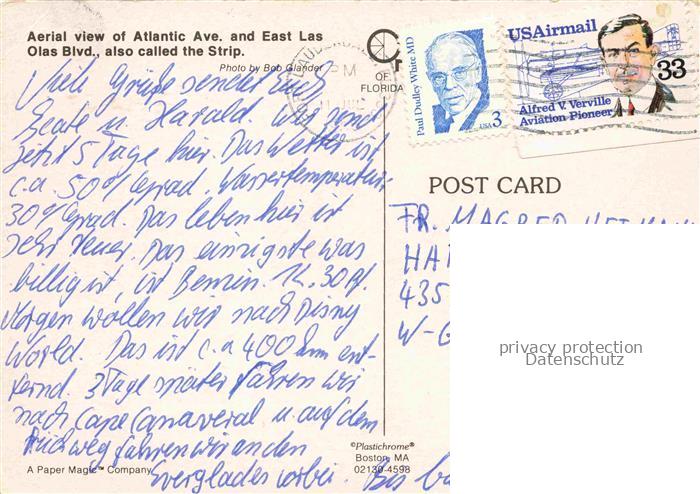 Aerial view of Atlantic Ave. and East Las
Olas Blvd., also called the Strip.
Photo by Bob Glander
Viele Grüße sendet Euch
Beate u. Harald. Wir sind
jetzt 5 Tage hier. Das Wetter ist
c.a. 50% Grad. Wassertemperatur:
30% Grad. Das leben hier ist
sehr teuer. Das einzigste was
billig ist, ist Benzin. 1L. 30 Pf.
Morgen wollen wir nach Disny
World. Das ist c.a 400 km ent-
fernd. 3 Tage später fahren wir
nach Cape Canaveral u. auf dem
Rückweg fahren wir an den
Everglades vorbei. Bis
A Paper Magic™ Company
©Plastichrome®
Boston, MA
02130-4598
LAUDERDALE
PM
OF
FLORIDA
Paul Dudley White MD
USA 3
USAirmail
33
Alfred V. Verville
Aviation Pioneer
POST CARD
FR. MAGRED
HA
435
W-G
privacy protection
Datenschutz